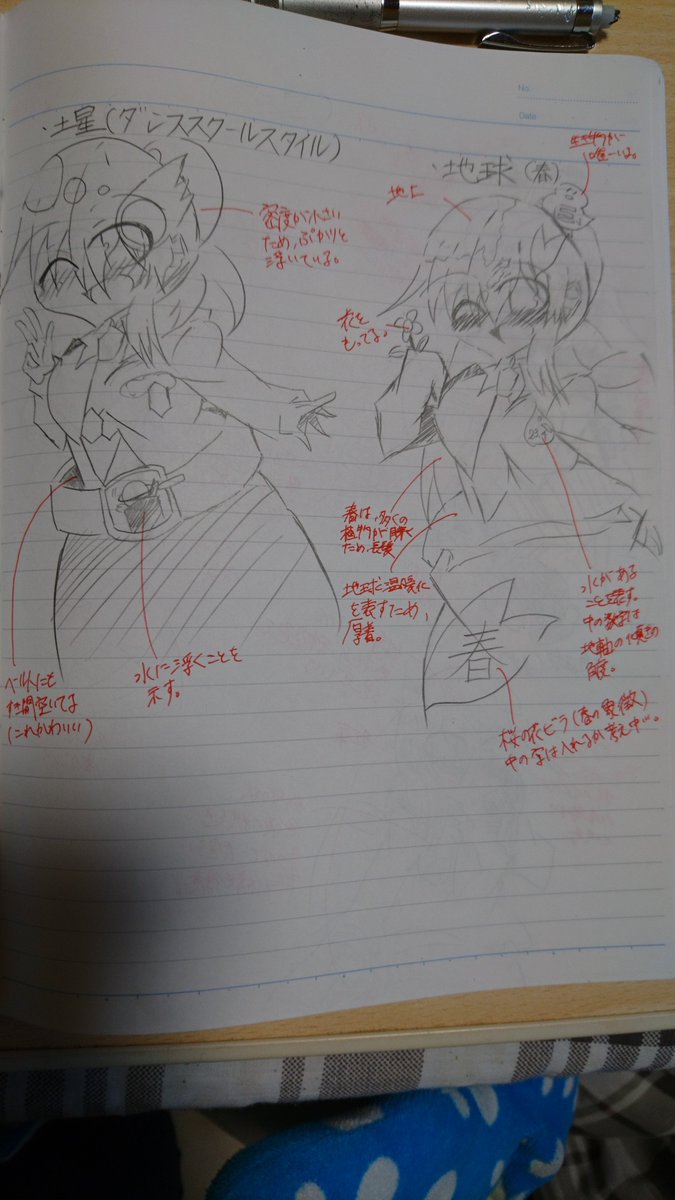 No.
Date
・土星(ダンススクールスタイル)
密度が小さい
ため、ぷかりと
浮いている。
ベルトにも
隙間空いてる
(これかわいい)
水に浮くことを
示す。
・地球(春)
生き物が
唯一いる。
地上
花を
もってる。
春は、多くの
植物が開く
ため、長髪
地球は温暖に
を表すため、
厚着。
23.4
水がある
ことを表す。
中の数字は
地軸の傾きの
角度。
春
桜の花ビラ(春の象徴)
中の字は入れるか考え中…。